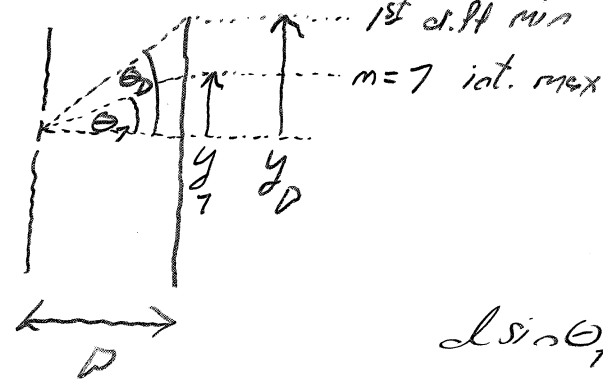 1st diff min
m=7 int. max
θ_D
θ_7
y_7 y_D
D
d sin θ_7